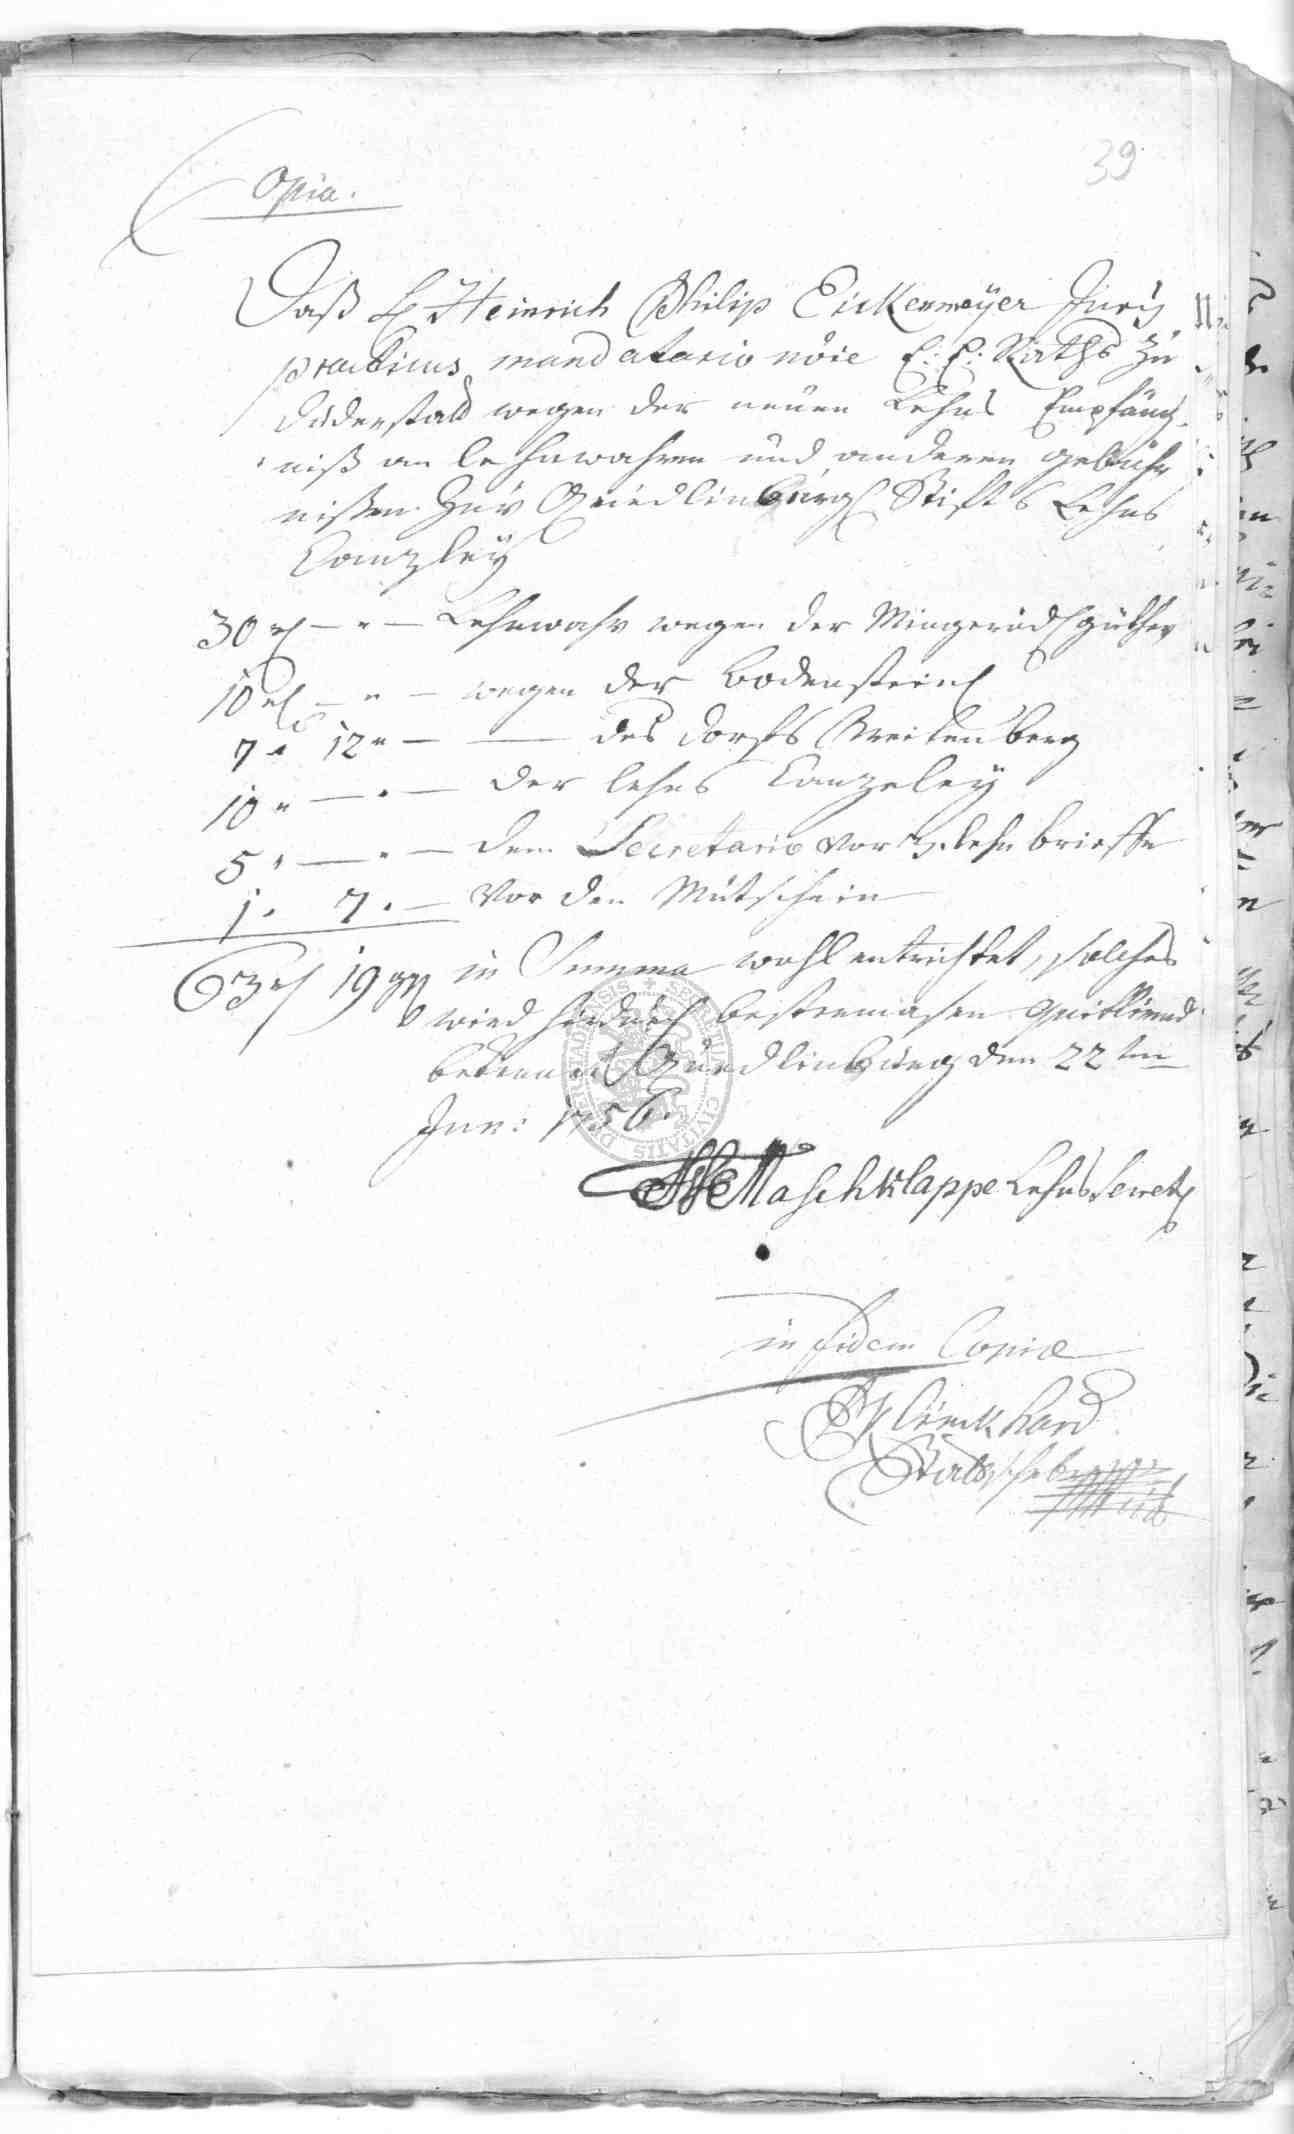 39
Copia.
Daß H Heinrich Philip Eickenmeyer Juris
practicus mandatario nõie E: E: Raths zu
Duderstadt wegen der neuen Lehns Empfäng
niß an lehnwahren und anderen gebühr
nißen zur Quedlinburg Stifts Lehns
Cantzley
30 rl — " — Lehnwahr wegen der Mingeröd güther
10 rl — " — wegen der Bodenstein
7 " 12 " — — des dorfs Breitenberg
10 " — " — der lehns Cantzeley
5 " — " — dem Secretario vor 3 lehn brieffe
1 " 7 " — Vor den Muthschein
63 rl 19 ggl in Summa wohl entrichtet, solches
wird hiedurch bestermasen quittirend
bekennet Quedlinburg den 22ten
Jun: 1756.
Maschklappe Lehns Secret
in fidem Copiæ
Stadtschreiber
SECRETUM CIVITATIS DUDERSTADENSIS